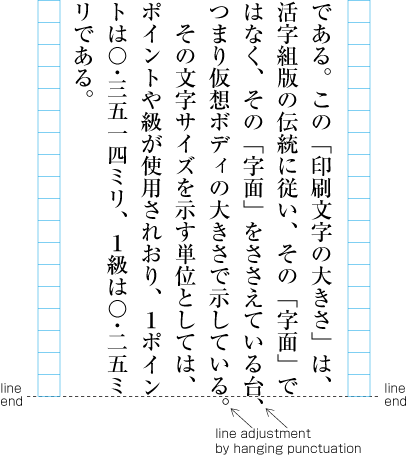 である。この「印刷文字の大きさ」は、
活字組版の伝統に従い、その「字面」で
はなく、その「字面」をささえている台、
つまり仮想ボディの大きさで示している。
その文字サイズを示す単位としては、
ポイントや級が使用されおり、１ポイン
トは〇・三五一四ミリ、１級は〇・二五ミ
リである。
line
end
line
end
line adjustment
by hanging punctuation